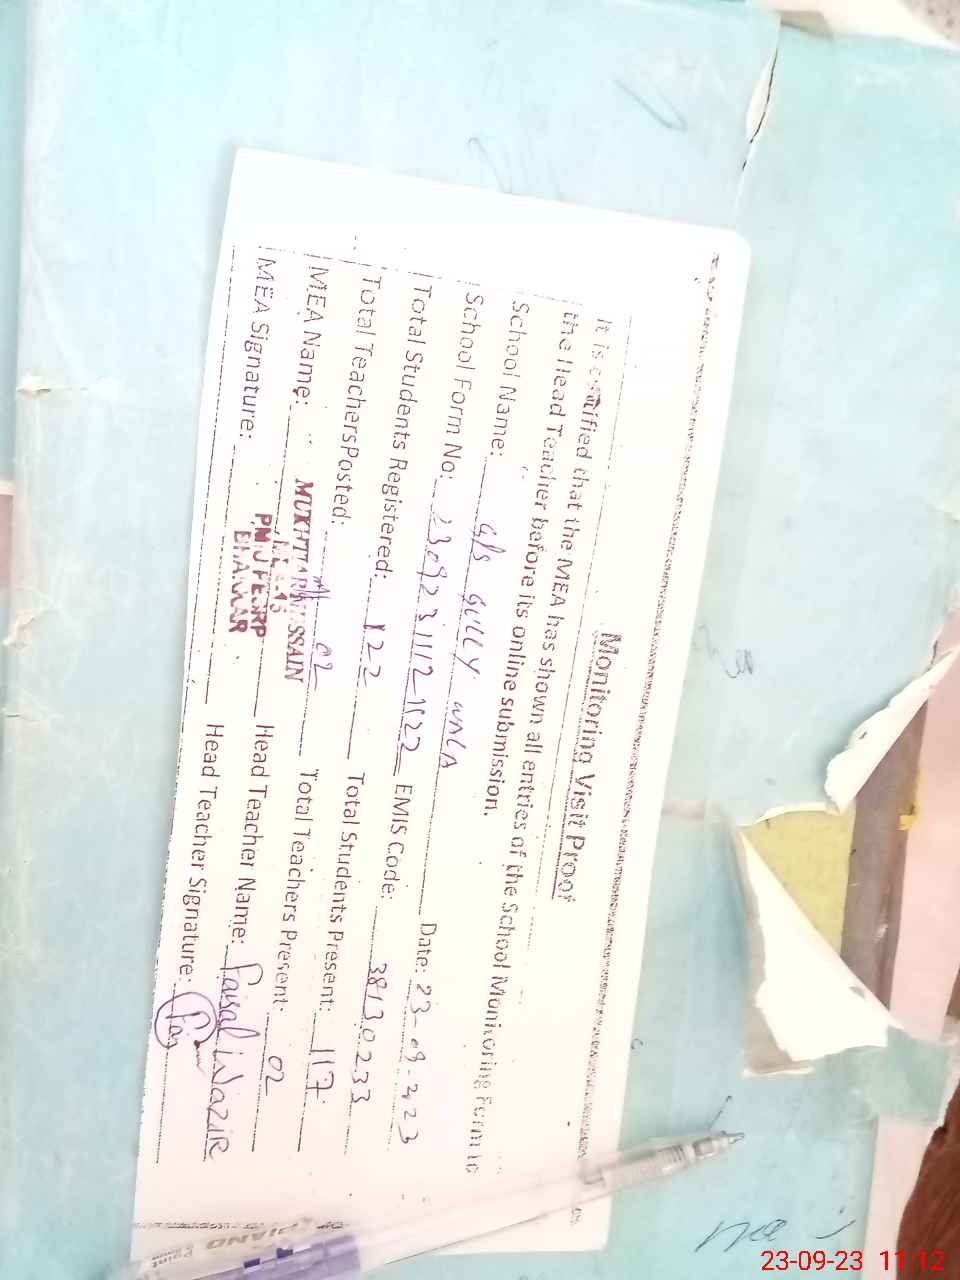 Monitoring Visit Proof
It is certified that the MEA has shown all entries of the School Monitoring Form to
the Head Teacher before its online submission.
School Name: G/S GULLY WALA Date: 23-09-2023
School Form No: 23092311121122 EMIS Code: 38130233
Total Students Registered: 122 Total Students Present: 117
Total TeachersPosted: 02 Total Teachers Present: 02
MEA Name: MUKHTAR HUSSAIN Head Teacher Name: Faisal WAZIR
PMIU PESRP
BHAKKAR
MEA Signature: Head Teacher Signature:
PIANO
Point
23-09-23 11:12